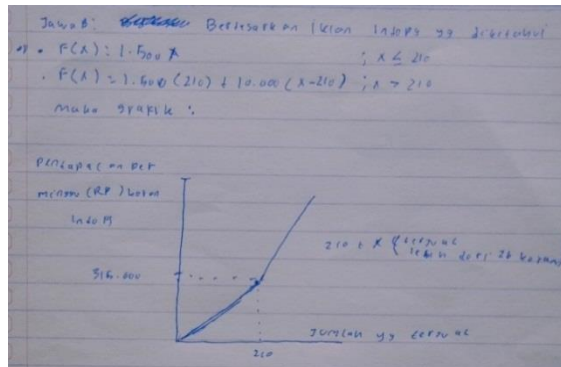 Jawab: Berdasarkan iklan Indopy yg diketahui
a) • F(x): 1.500 x ; x ≤ 210
• F(x): 1.500 (210) + 10.000 (x-210) ; x > 210
maka grafik :
Pendapatan per
minggu (RP) koran
315.000
210 < x
terjual
lebih dari
Jumlah yg terjual
210